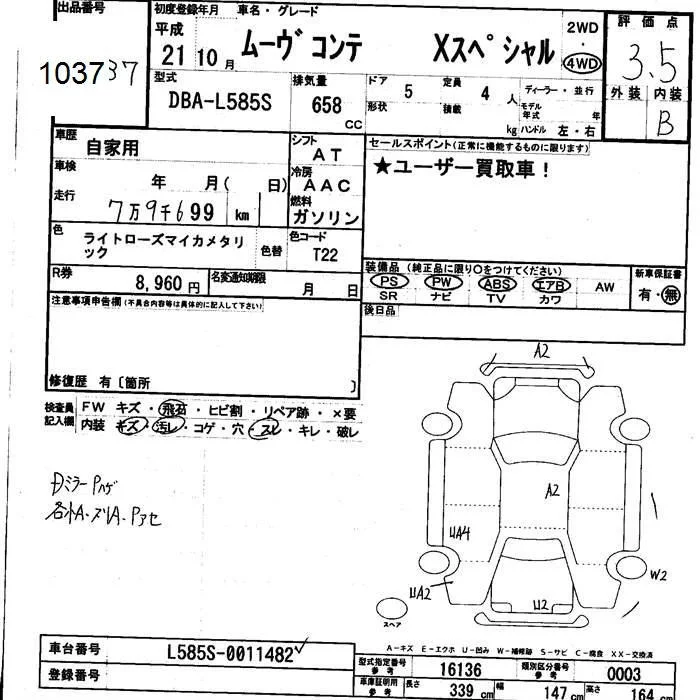 出品番号
103737
初度登録年月 車名・グレード
平成
21 10月
ムーヴ コンテ Xスペシャル
2WD
・
4WD
評価点
3.5
外装 内装
B
型式
DBA-L585S
排気量
658
cc
ドア 5
形状
定員 4 人
積載 kg
ディーラー・並行
モデル年式 年
ハンドル 左・右
車歴
自家用
車検
年 月( 日)
走行
7万9千699 km
シフト
AT
冷房
AAC
燃料
ガソリン
セールスポイント(正常に機能するものに限ります)
★ユーザー買取車!
色
ライトローズマイカメタリ
ック
色替
色コード
T22
R券
8,960 円
名変通知期限
月 日
装備品 (純正品に限り○をつけてください)
PS PW ABS エアB AW
SR ナビ TV カワ
新車保証書
有・無
後日品
注意事項申告欄(不具合内容等は具体的に記入して下さい)
修復歴 有〔箇所 〕
検査員
記入欄
FW キズ・飛石・ヒビ割・リペア跡・×要
内装 キズ・汚レ・コゲ・穴・スレ・キレ・破レ
DミラーPハゲ
各外A・ズリA・Pアセ
A2
A2
UA4
UA2
U2
W2
スペア
A-キズ E-エクボ U-凹み W-補修跡 S-サビ C-腐食 XX-交換済
車台番号
L585S-0011482
登録番号
型式指定番号
参考
16136
類別区分番号
参考
0003
車庫証明用
参考
長さ 339 cm
幅 147 cm
高さ 164 cm